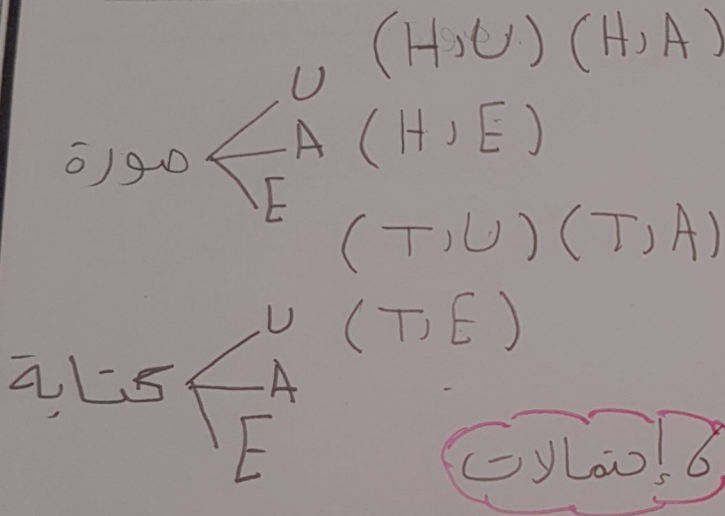 (H,U) (H,A)
U
صورة A (H,E)
E
(T,U) (T,A)
U (T,E)
كتابة A
E
6 إحتمالات